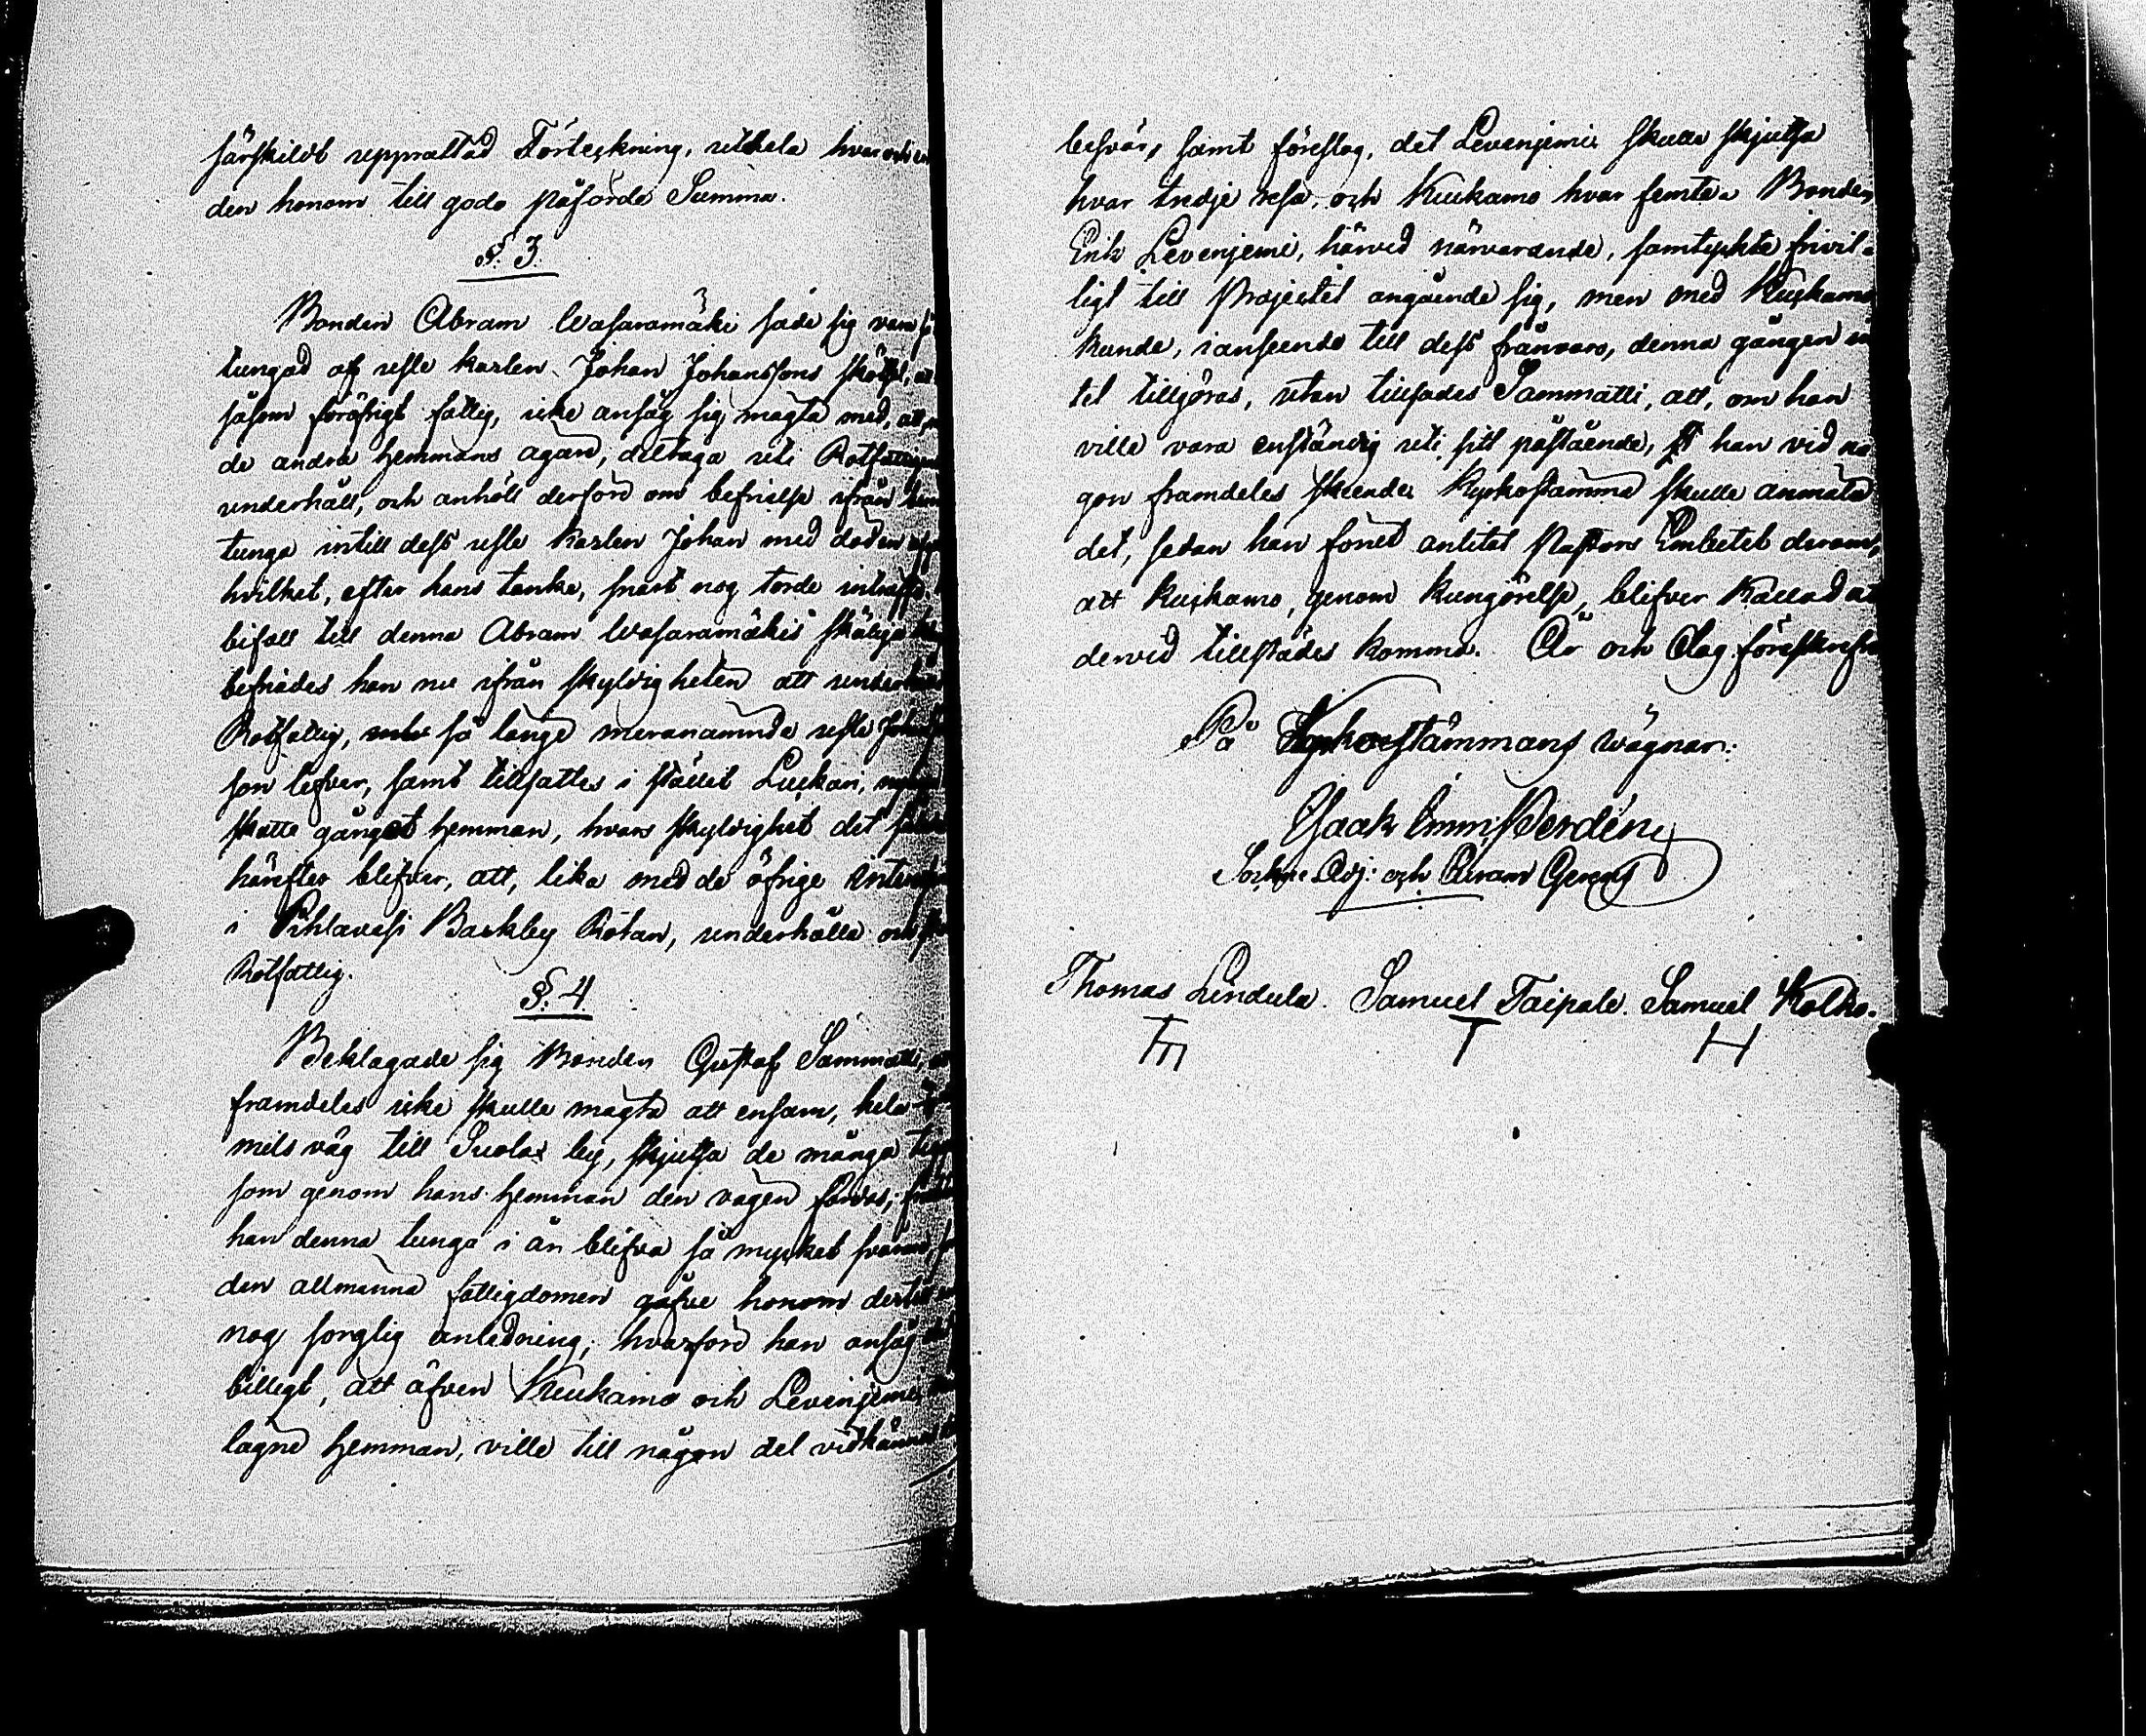 särskildt upprättad Förteckning, utdela hvar och en
den honom till godo påförde Summa.
§. 3.
Bonden Abram Wasaramäki sade sig vara
tungad af usle karlen Johan Johanssons skötsel,
såsom föröfrigt fattig, icke ansåg sig mägta med, att,
de andra hemmans ägare, deltaga uti Rotfattigas
underhåll, och anhöll derföre om befrielse ifrån
tunga intill dess usle karlen Johan med döden
hvilket, efter hans tanke, snart nog torde inträffa,
bifall till denna Abram Wasaramäkis skäliga
befriades han nu ifrån skyldigheten att underhålla
Rotfattig, så länge meranämnde usle
son lefver, samt tillsattes i stället Luckari,
skatte gånget hemman, hvars skyldighet det
härefter blifver, att, lika med de öfrige
i Pihlavesi Backby Rotan, underhålla
Rotfattig.
§. 4.
Beklagade sig Bonden Gustaf Sammatti,
framdeles icke skulle mägta att ensam, hela
mils väg till Suolax by, skjutsa de många
som genom hans hemman den vägen fordras;
han denna tunga i år blifva så mycket svårare,
den allmänna fattigdomen gåfve honom dertill
nog sorglig anledning; hvarföre han ansåg
billigt, att äfven Kuukamo och Levenjemi
lägne hemman, ville till någon del vidkännas
besvär, samt föreslog, det Levenjemi skulle skjutsa
hvar tredje resa, och Kuukamo hvar femte. Bonden
Erik Levenjemi, härvid närvarande, samtyckte frivil-
ligt till Projectet angående sig, men med Kuukamo
kunde, i anseende till dess frånvaro, denna gången
tet tillgöras, utan tillsades Sammatti, att, om han
ville vara enständig uti sitt påstående, han vid nå
gon framdeles skeende Kyrkostämma skulle anmäla
det, sedan han förut anlitat Pastors Embetet derom,
att Kuukamo, genom kungörelse, blifver kallad at
dervid tillstädes komma. År och Dag föreskrefne
På Kyrkostämmans wägnar:
Isaak Imm. Verdin,
Sockne Adj: och Curam Gerens
Thomas Lindula. Samuel Taipale. Samuel Kolho.